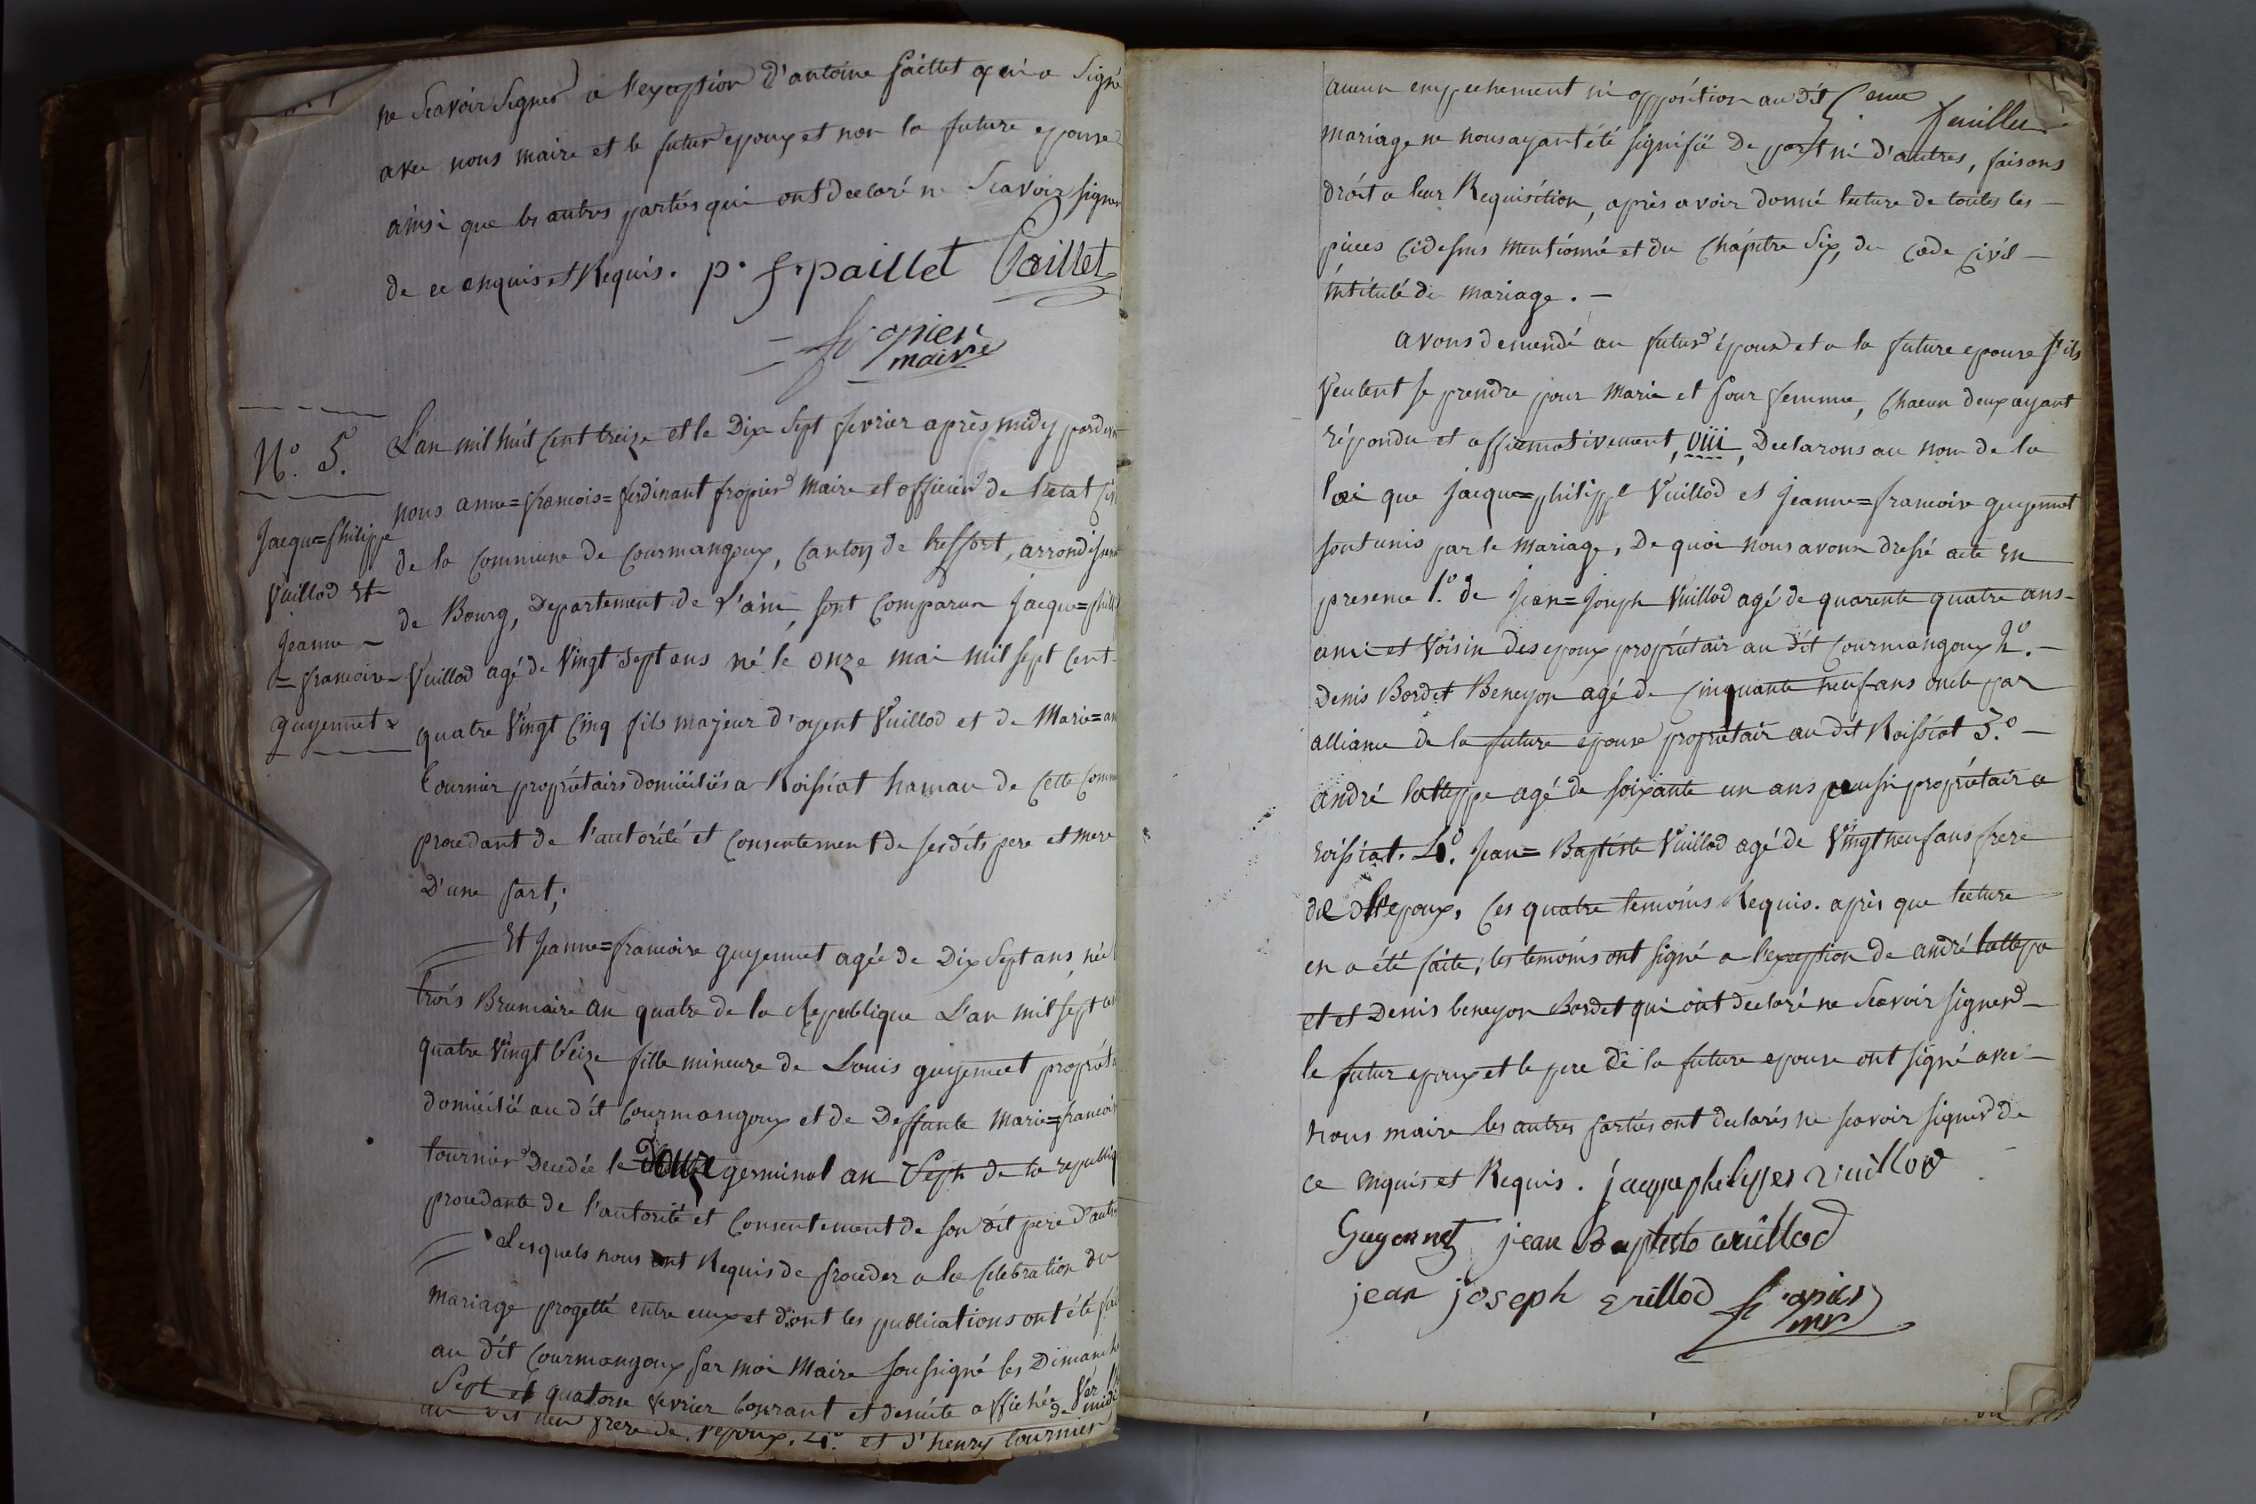 ne Scavoir Signer a l'exeption d'antoine paillet qui a Signé
avec nous maire et le futur epoux et non la future epouse
ainsi que les autres parties qui ont declaré ne Scavoir signer
de ce enquis et Requis. p. f. paillet Paillet
fropier
maire
N.o 5.
Jacque=philippe
Vuillod Et
jeanne
=francoise
guyennet
L'an mil huit Cent treize et le Dix Sept fevrier après midy pardev
nous anne=francois=ferdinant fropier Maire et officier de l'etat Civ
de la Commune de Courmangoux, Canton de treffort, arrondissem
de Bourg, Departement de l'ain, sont Comparus Jacque=phili
Vuillod agé de Vingt Sept ans né le onze mai mil sept Cent
quatre Vingt Cinq fils majeur d'oyent Vuillod et de Marie=an
tournier propriétairs domiciliés a Roissiat hamau de Cette Comm
procedant de l'autorité et Consentement de sesdits pere et mere
D'une part;
Et Jeanne=francoise guyennet agée de Dix Sept ans, née
trois Brumaire an quatre de la Republique L'an mil sept
quatre Vingt Seize fille mineure de Louis guyennet propriét
domicilié au dit Courmangoux et de Deffunte Marie=francois
tournier Decedée le Douze germinal an Sept de la republiq
procedante de l'autorité et Consentement de son dit pere d'autr
Lesquels nous ont Requis de proceder a la Celebration du
Mariage progetté entre eux et dont les publications ont été fai
au dit Courmangoux par moi Maire soussigné les Dimanch
Sept et quatorse fevrier Courant et desuite affichée
frere de l'epoux. 4.o et d'henry tournier
aucun empechement ni opposition au dit
feuillet
mariage ne nous ayant été signifié De part ni d'autres, faisons
droit a leur Requisition, après avoir donné lecture de toutes les
pieces Cidessus mentionné et du Chapitre Six, du Code Civil
intitulé du mariage.
avons demendé au futur époux et a la future epouse s'ils
Veulent se prendre pour Marie et pour femme, Chacun deux ayant
répondu et affirmativement, oüi, Declarons au nom de la
loi que Jacque=philippe Vuillod et Jeanne=francoise guyennet
sont unis par le Mariage, De quoi nous avons dressé acte En
presence 1.o de Jean=Joseph Vuillod agé de quarente quatre ans
ami et Voisin des epoux propriétair au dit Courmangoux 2.o
Denis Bordet Beneyon agé de Cinquante neuf ans oncle par
alliance de la future epouse propriétair au dit Roissiat 3.o
andré latteppe agé de soixante un ans aussi propriétair a
roissiat. 4.o Jean=Baptiste Vuillod agé de Vingt neuf ans frere
de l'epoux, Ces quatre temoins Requis. après que lecture
en a été faite; les temoins ont signé a l'exeption de andré lattepe
et et Denis beneyon Bordet qui ont declaré ne Scavoir signer
le futur epoux et le pere de la future epouse ont signé avec
nous maire les autres parties ont declarés ne scavoir signer de
ce enquis et Requis. jaqque philippes vuillod
Guyennet jean Baptiste vuillod
jean joseph vuillod fropier
mr